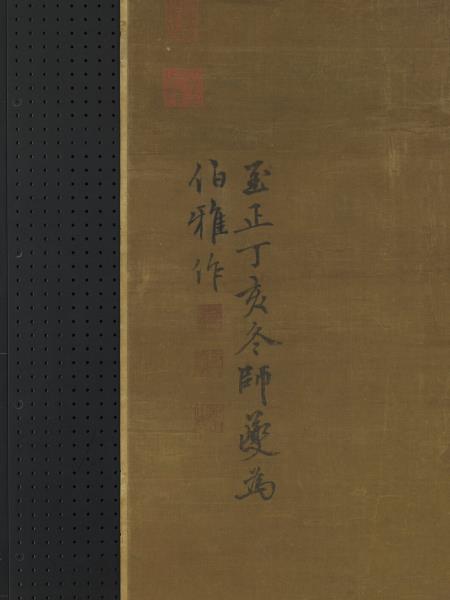 至正丁亥冬師夔為
伯雅作